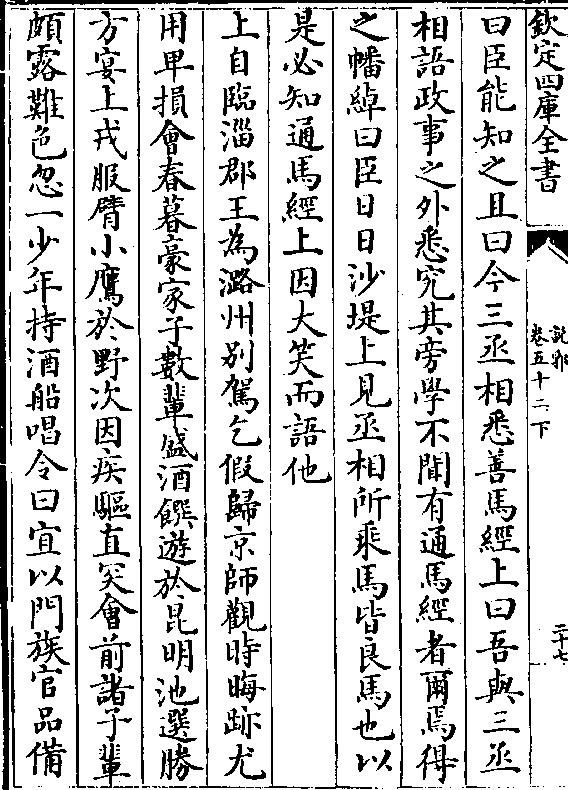 欽定四庫全書
說郛
卷五十二下
二十七
曰臣能知之且曰今三丞相悉善馬經上曰吾與三丞
相語政事之外悉究其旁學不聞有通馬經者爾焉得
之幡綽曰臣日日沙堤上見丞相所乘馬皆良馬也以
是必知通馬經上因大笑而語他
上自臨淄郡王為潞州别駕乞假歸京師觀時晦跡尤
用卑損會春暮豪家子數輩盛酒饌遊於昆明池選勝
方宴上戎服臂小鷹於野次因疾驅直突會前諸子輩
頗露難色忽一少年持酒船唱令曰宜以門族官品備